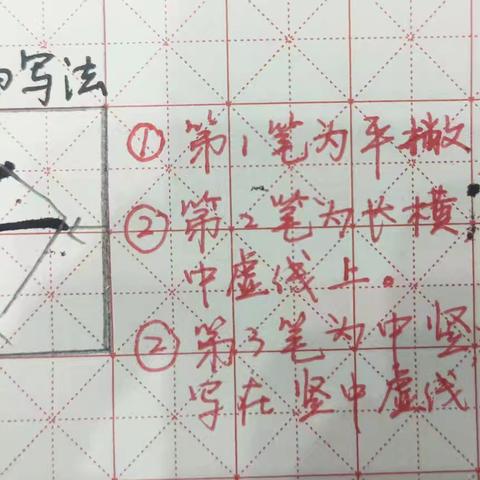 写法
①第1笔为平撇
②第2笔为长横
中虚线上。
②第3笔为中竖
写在竖中虚线